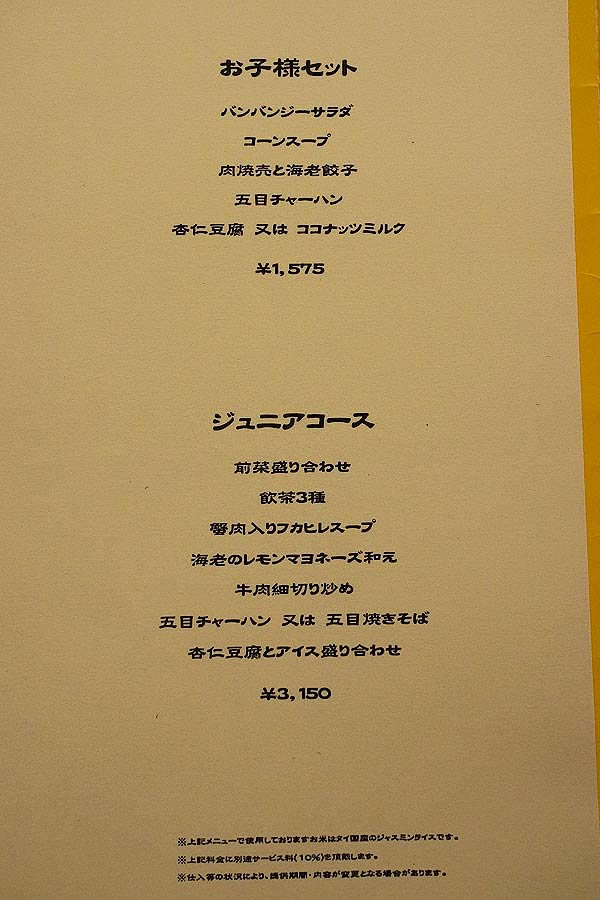 お子様セット
バンバンジーサラダ
コーンスープ
肉焼売と海老餃子
五目チャーハン
杏仁豆腐 又は ココナッツミルク
¥1,575
ジュニアコース
前菜盛り合わせ
飲茶3種
蟹肉入りフカヒレスープ
海老のレモンマヨネーズ和え
牛肉細切り炒め
五目チャーハン 又は 五目焼きそば
杏仁豆腐とアイス盛り合わせ
¥3,150
※上記メニューで使用しておりますお米はタイ国産のジャスミンライスです。
※上記料金に別途サービス料(10%)を頂戴します。
※仕入等の状況により、提供期間・内容が変更となる場合があります。